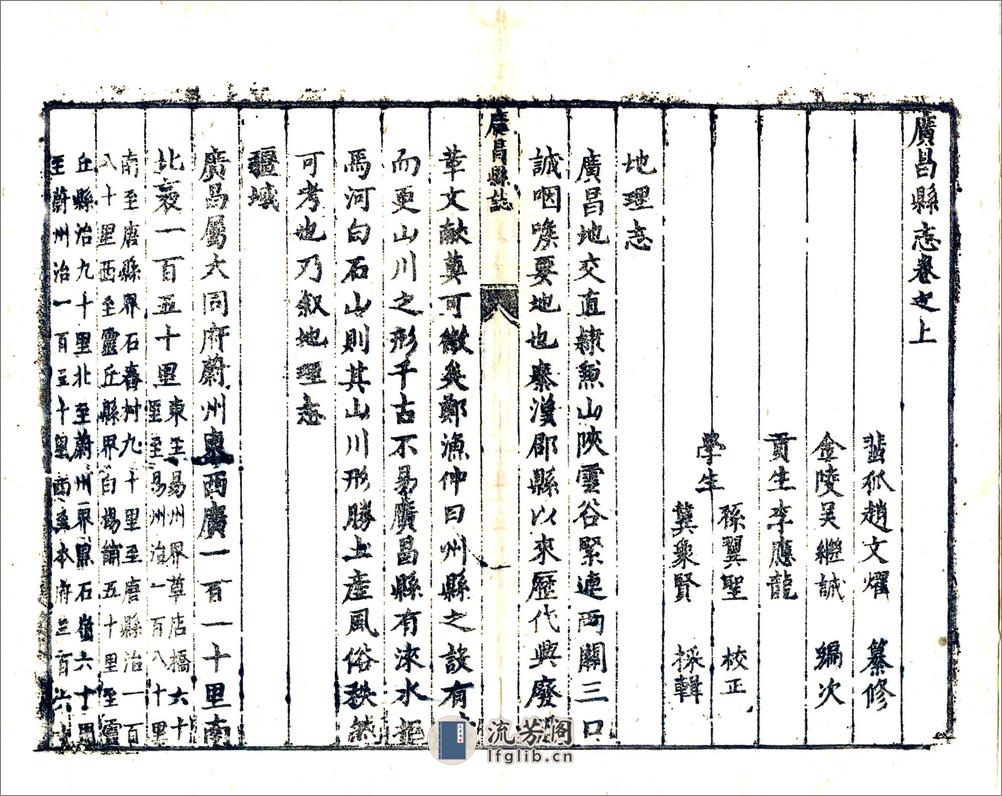 廣昌縣志卷之上
蜚狐趙文燿　纂修
金陵吴繼誠　編次
貢生李應龍
學生
孫翼聖　校正
冀象賢　採輯
地理志
廣昌地交直隸懸山陝雲谷緊連兩關三口
誠咽喉要地也秦漢郡縣以來歷代興廢
華文献莫可徵矣鄭漁仲曰州縣之設有
而更山川之形千古不易廣昌縣有淶水
爲河白石山則其山川形勝土產風俗秩然
可考也乃叙地理志
疆域
廣昌屬大同府蔚州東西廣一百一十里南
北袤一百五十里
東至易州界草店橋六十
里至易州治一百八十里
南至唐縣界石春村九十里至唐縣治一百
八十里西至靈丘縣界白楊鋪五十里至靈
丘縣治九十里北至蔚州界黑石嶺六十里
至蔚州治一百三十里西至本府三百六十
廣昌縣誌
一
流芳阁
lfglib.cn